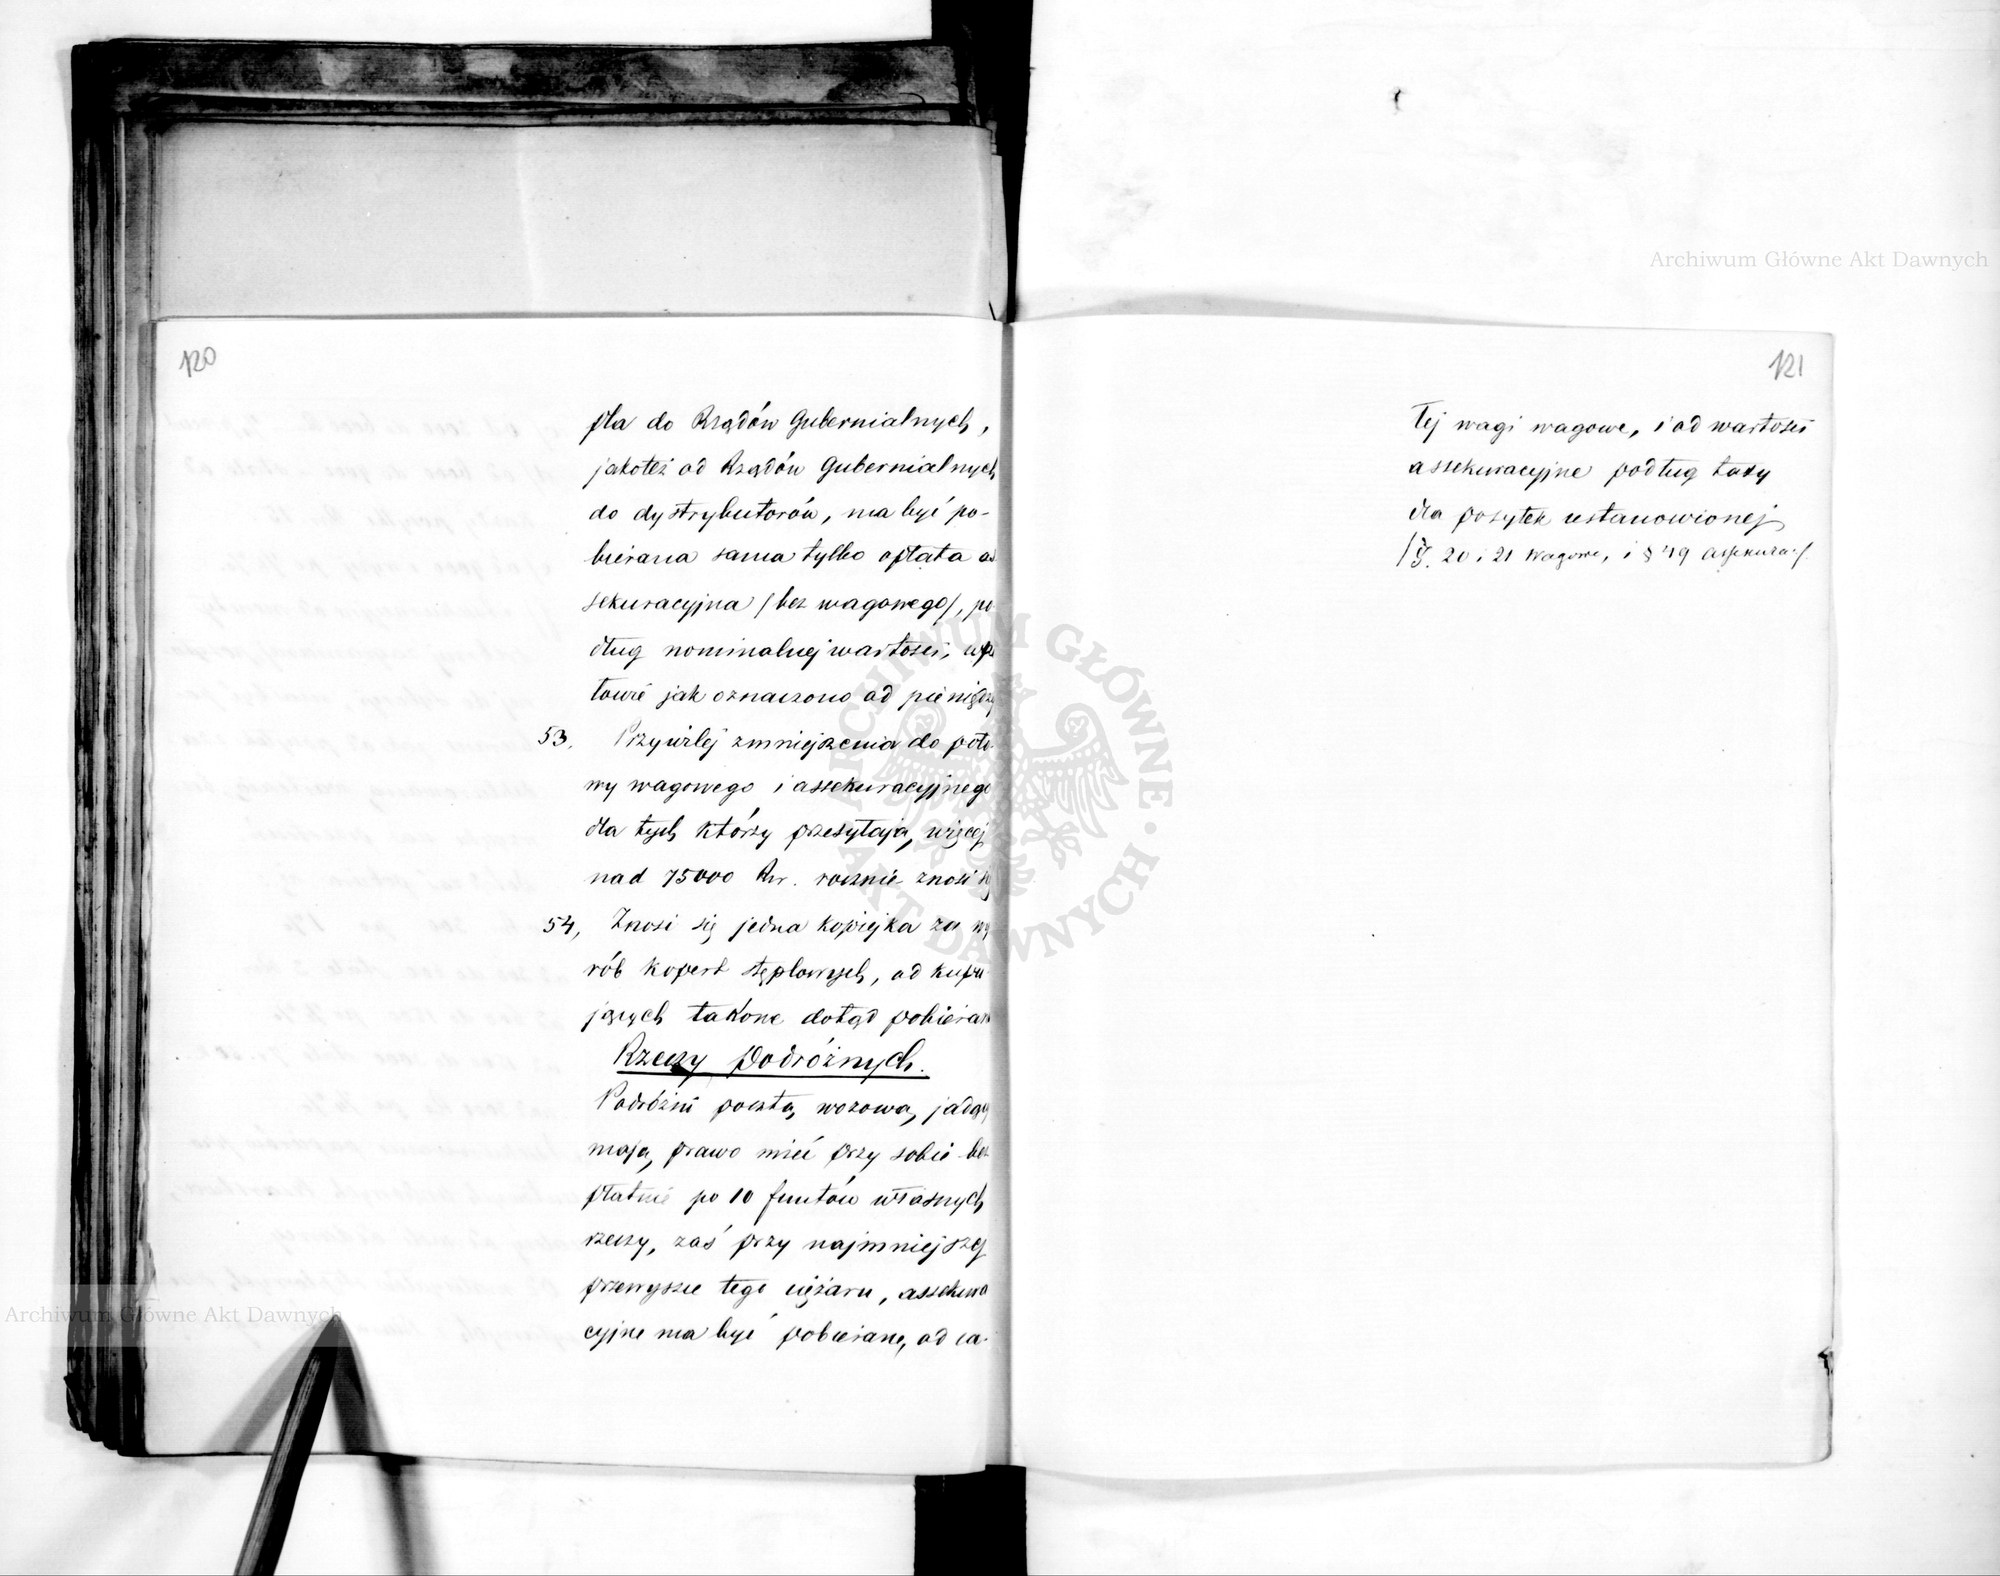 120
pla do Rządów Gubernialnych,
jakoteż od Rządów Gubernialnych
do dystrybutorów, ma być po-
bierana sama tylko opłata as
sekuracyjna /bez wagowego/, po
dług nominalnej wartości,
towie jak oznaczono od pieniędzy
53. Przywilej zmniejszenia do poło-
wy wagowego i assekuracyjnego
dla tych którzy przesyłają więcej
nad 75000 Rsr. rocznie znosi się
54, Znosi się jedna kopiejka za wy
rób kopert stęplowych, od kupu
jących takowe dotąd pobieran
Rzeczy Podróżnych.
Podróżni pocztą wozową jadący
mają prawo mieć przy sobie bez
płatnie po 10 funtów własnych
rzeczy, zaś przy najmniejszej
przewyszce tego ciężaru, assekura
cyjne ma być pobierane, od ca-
121
łej wagi wagowe, i od wartości
assekuracyjne podług taxy
dla posyłek ustanowionej
/§. 20 i 21 wagowe, i § 49 assekura./
Archiwum Główne Akt Dawnych
Archiwum Główne Akt Dawnych
ARCHIWUM GŁÓWNE AKT DAWNYCH